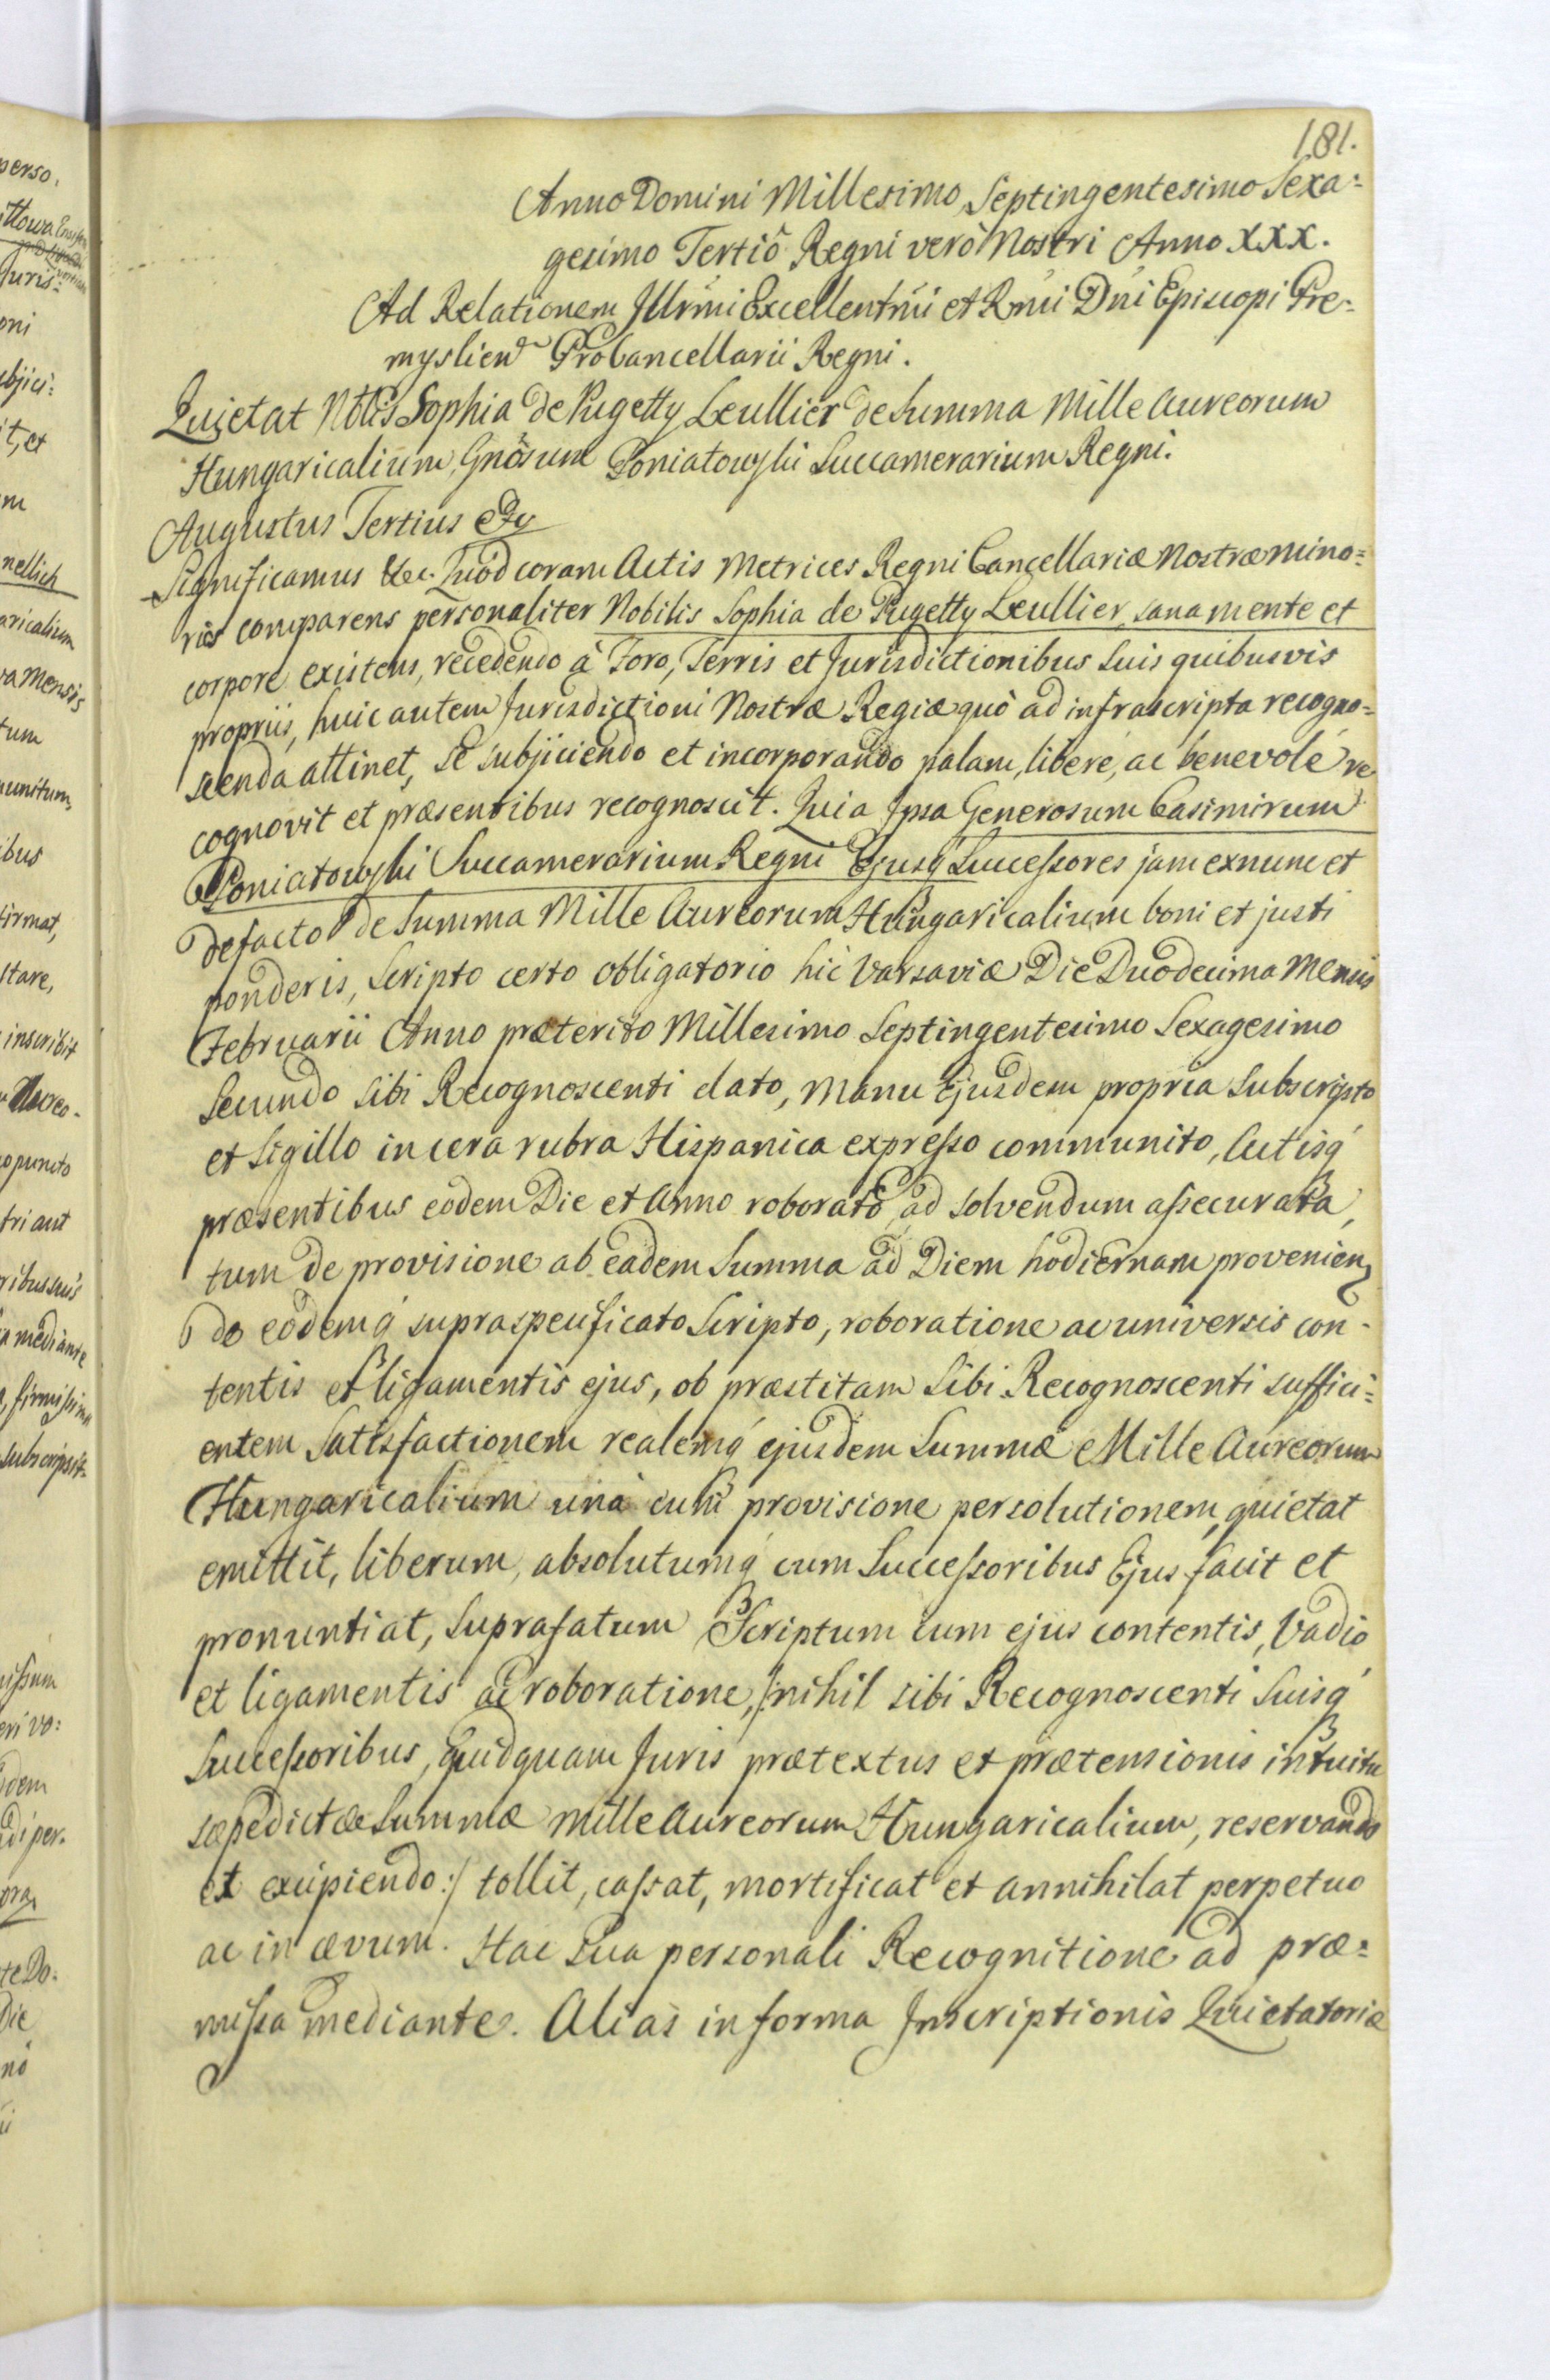 181.
Anno Domini Millesimo Septingentesimo Sexa=
gesimo Tertiô Regni verò Nostri Anno XXX.
Ad Relationem Illrmi Excellentmi et Rmi Dni Episcopi Pre=
myslien ProCancellarii Regni.
Quietat Nblis Sophia de Pugetty Leullier de Summa Mille Aureorum
Hungaricalium, Gnosum Poniatowski Succamerarium Regni.
Augustus Tertius etc
Significamus &c. Quod coram Actis Metrices Regni Cancellariæ Nostræ Mino=
ris comparens personaliter Nobilis Sophia de Pugetty Leullier, sana mente et
corpore existens, recedendo à Foro, Terris et Jurisdictionibus suis quibusvis
propriis, huic autem Jurisdictioni Nostræ Regiæ quò ad infrascripta recogno=
scenda attinet, se subjiciendo et incorporando palam, liberè, ac benevolè re
cognovit et præsentibus recognoscit. Quia Ipsa Generosum Casimirum
Poniatowski Succamerarium Regni Ejusq́ Successores jam exnunc et
defacto de Summa Mille Aureorum Hungaricalium boni et justi
ponderis, Scripto certo obligatorio hic Varsaviæ Die Duodecima Mensis
Februarii Anno præterito Millesimo Septingentesimo Sexagesimo
Secundo sibi Recognoscenti dato, manu Ejusdem propria subscripto
et Sigillo in cera rubra Hispanica expresso communito, Actisq́
præsentibus eodem Die et Anno roborato, ad solvendum assecurata,
tum de provisione ab eadem Summa ad Diem hodiernam provenien
do eodemq́ supraspecificato Scripto, roboratione ac universis con=
tentis et ligamentis ejus, ob præstitam sibi Recognoscenti suffici=
entem Satisfactionem realemq́ ejusdem Summæ Mille Aureorum
Hungaricalium unà cum provisione persolutionem, quietat
emittit, liberum, absolutumq́ cum Successoribus Ejus facit et
pronuntiat, suprafatum Scriptum cum ejus contentis, Vadio
et ligamentis ac roboratione, /:nihil sibi Recognoscenti Suisq́
Successoribus, quidquam Juris prætextus et prætensionis intuitu
sæpedictæ Summæ Mille Aureorum Hungaricalium, reservando
et excipiendo:/ tollit, cassat, mortificat et annihilat perpetuo
ac in ævum. Hac sua personali Recognitione ad præ=
missa mediante. Alias in forma Inscriptionis Quietatoriæ